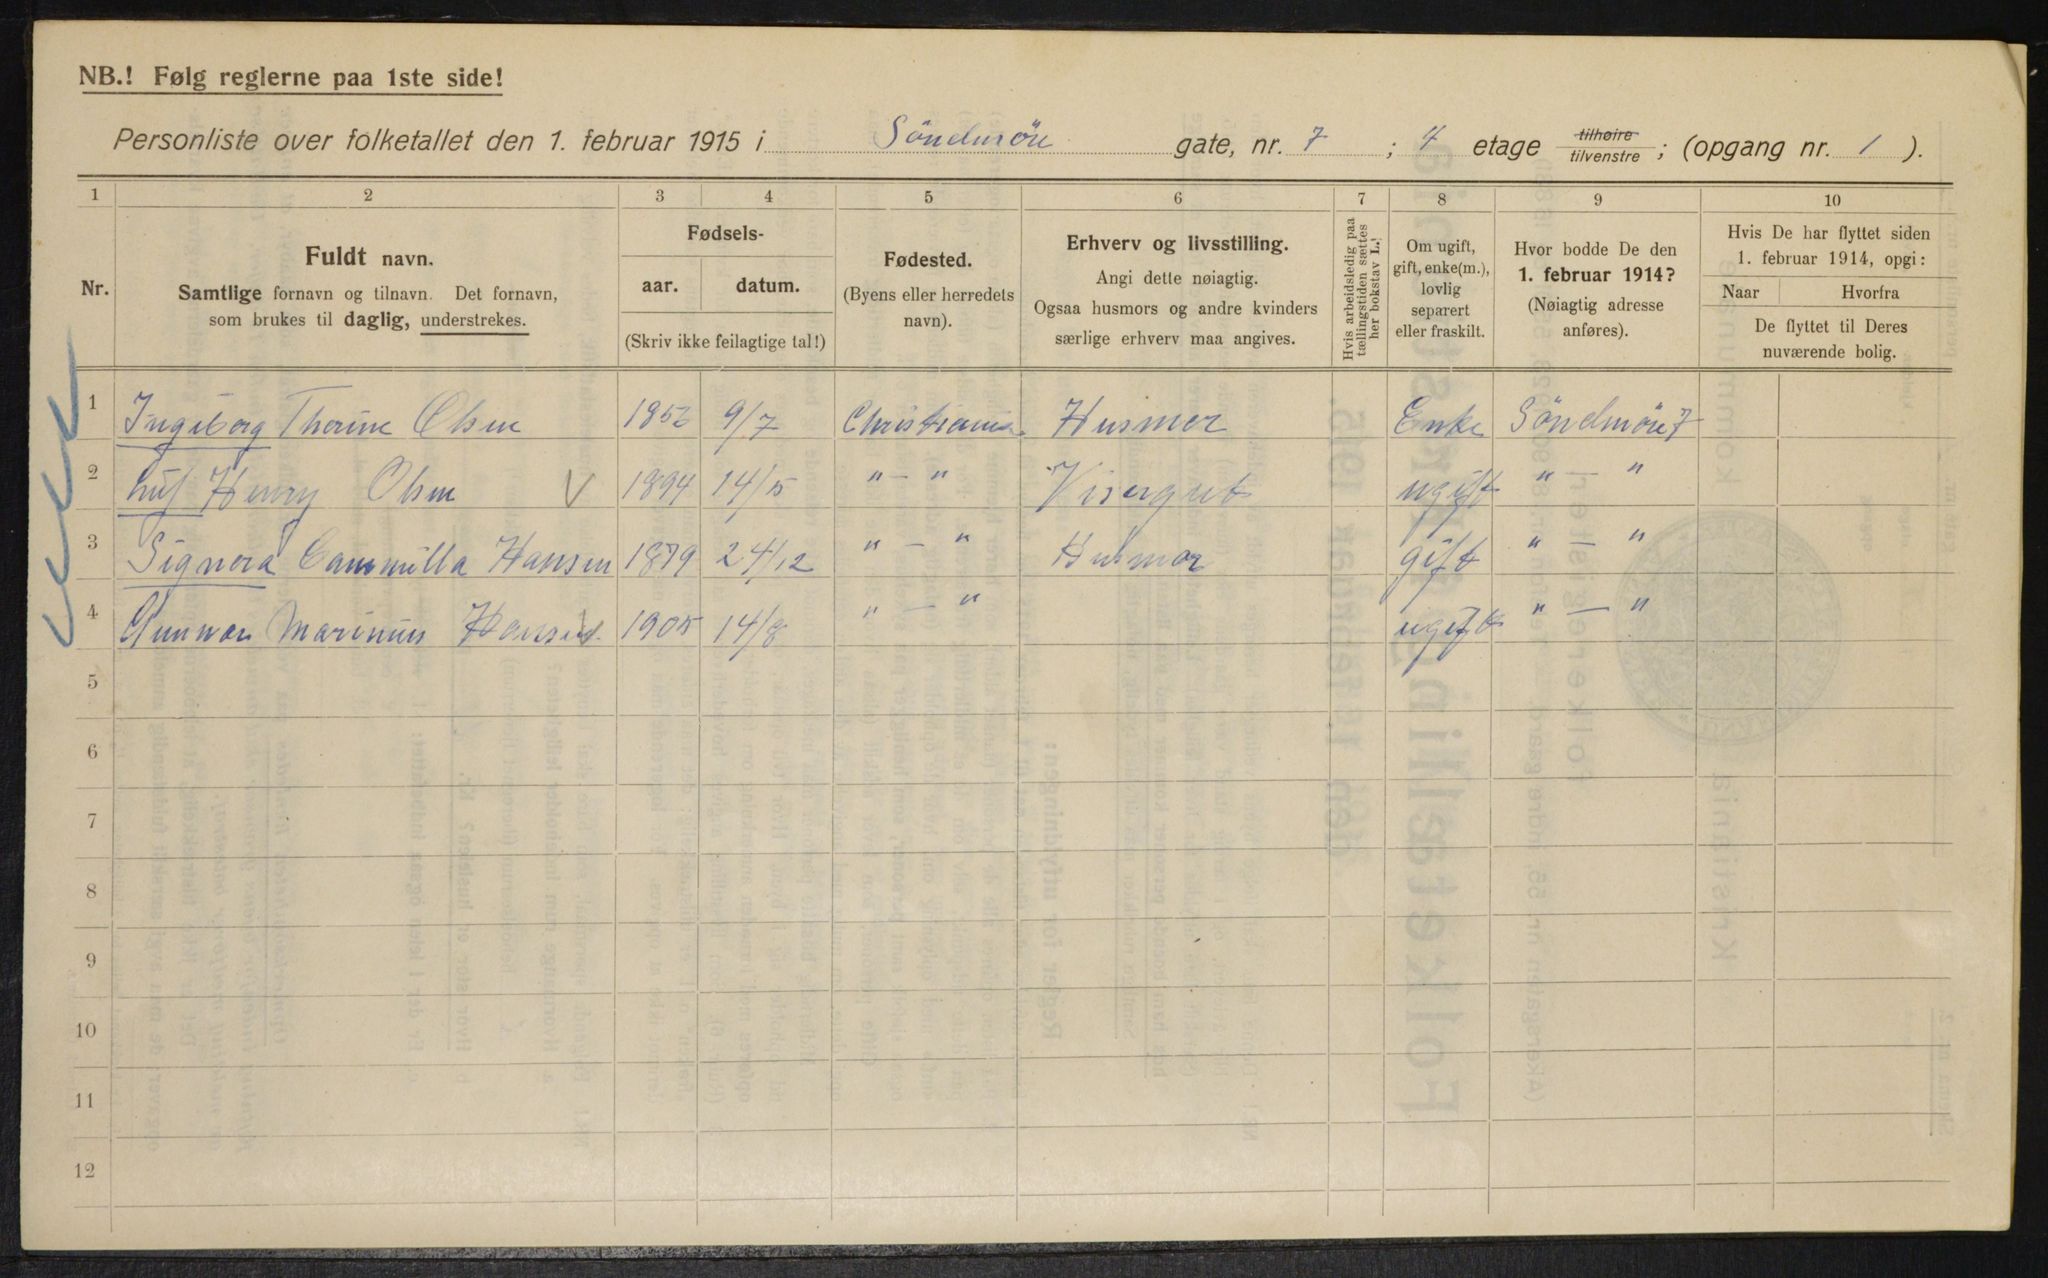 NB.! Følg reglerne paa 1ste side!
Personliste over folketallet den 1. februar 1915 i Söndmöre gate, nr. 7 ; 4 etage tilhøire tilvenstre ; (opgang nr. 1 ).
1 2 3 4 5 6 7 8 9 10
Nr.
Fuldt navn.
Samtlige fornavn og tilnavn. Det fornavn,
som brukes til daglig, understrekes.
Fødsels-
aar. datum.
(Skriv ikke feilagtige tal!)
Fødested.
(Byens eller herredets
navn).
Erhverv og livsstilling.
Angi dette nøiagtig.
Ogsaa husmors og andre kvinders
særlige erhverv maa angives.
Hvis arbeidsledig paa
tællingstiden sættes
her bokstav L.!
Om ugift,
gift, enke(m.),
lovlig
separert
eller fraskilt.
Hvor bodde De den
1. februar 1914?
(Nøiagtig adresse
anføres).
Hvis De har flyttet siden
1. februar 1914, opgi:
Naar Hvorfra
De flyttet til Deres
nuværende bolig.
1 Ingeborg Thorine Olsen 9/7 Christiania Husmor Enke Söndmöre 7
2 Henry Olsen 1894 14/5 " — " Visergut ugift " — "
3 Signora Cammilla Hansen 1879 24/12 " — " Husmor gift " — "
4 Gunnar Marinius Hansen 1905 14/8 " — " ugift " — "
5
6
7
8
9
10
11
12